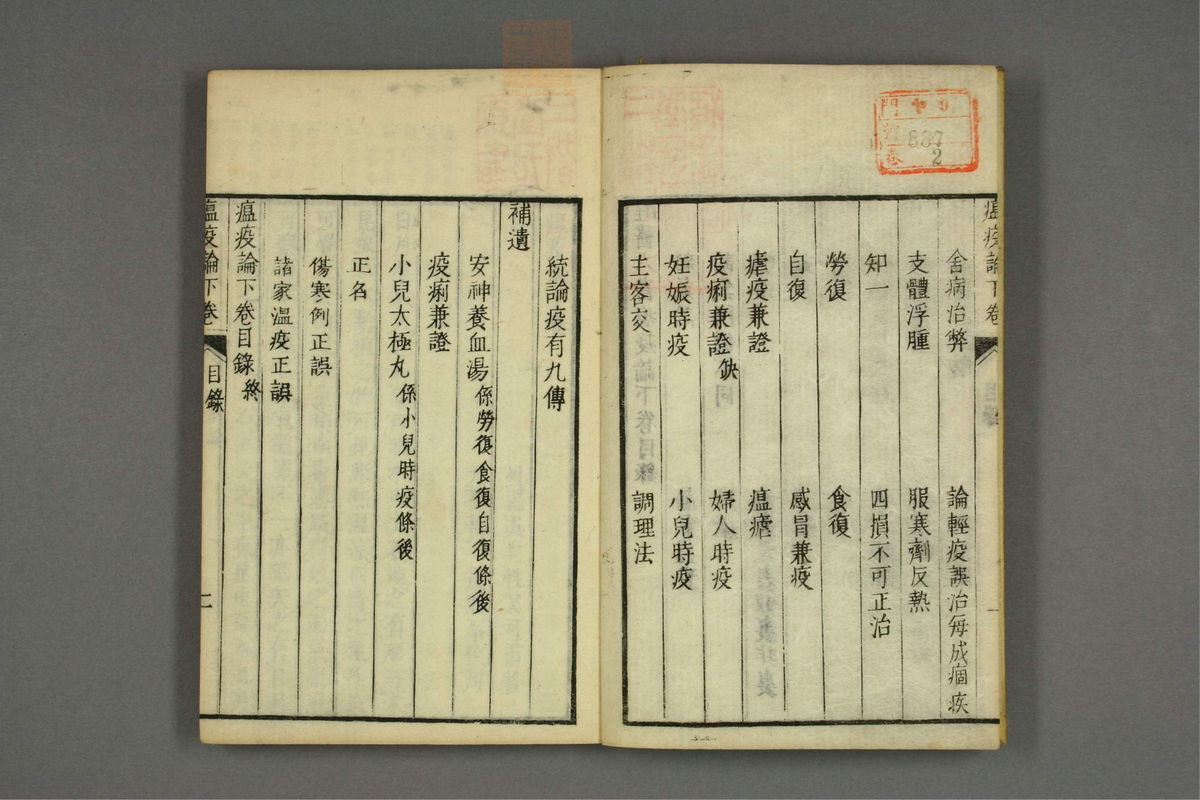 瘟疫論下卷
舍病治弊　論輕疫誤治每成痼疾
支體浮腫　服寒劑反熱
知一　四損不可正治
勞復　食復
自復　感冒兼疫
瘧疫兼證　瘟瘧
疫痢兼證缺　婦人時疫
妊娠時疫　小兒時疫
主客交　調理法
統論疫有九傳
補遺
安神養血湯係勞復食復自復條後
疫痢兼證
小兒太極丸係小兒時疫條後
正名
傷寒例正誤
諸家温疫正誤
瘟疫論下卷目錄終
瘟疫論下卷　目錄　二
門 9
號 837
卷 2